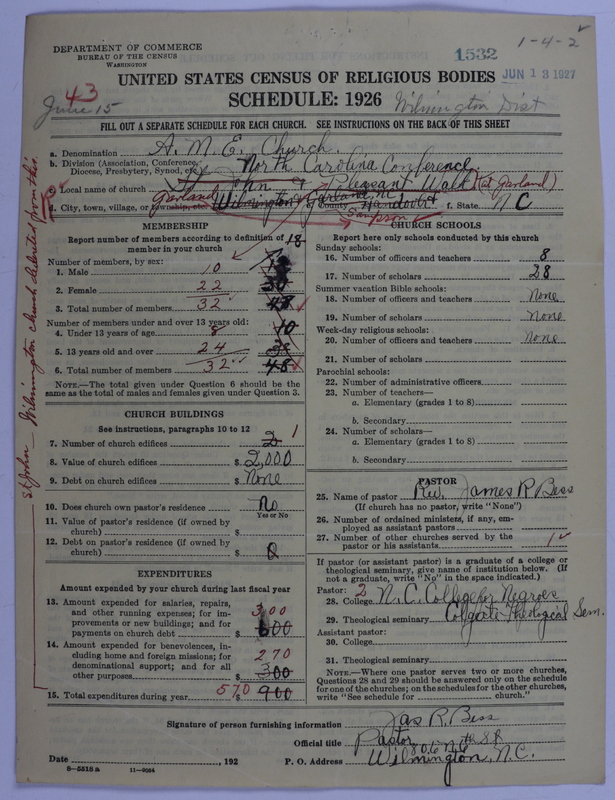 DEPARTMENT OF COMMERCE
BUREAU OF THE CENSUS
WASHINGTON
1532
1-4-2
UNITED STATES CENSUS OF RELIGIOUS BODIES
JUN 13 1927
43
June 15
SCHEDULE: 1926
Wilmington Dist
FILL OUT A SEPARATE SCHEDULE FOR EACH CHURCH. SEE INSTRUCTIONS ON THE BACK OF THIS SHEET
a. Denomination A. M. E. Church
b. Division (Association, Conference, Diocese, Presbytery, Synod, etc.) North Carolina Conference
c. Local name of church St John & Pleasant Walk (at Garland)
d. City, town, village, or township, etc. Garland Wilmington Garland, NC e. County Sampson f. State NC
St John - Wilmington church deleted from this.
MEMBERSHIP
Report number of members according to definition of member in your church
18
Number of members, by sex:
1. Male 10
2. Female 22 30
3. Total number of members 32 48
Number of members under and over 13 years old:
4. Under 13 years of age 8 10
5. 13 years old and over 24
6. Total number of members 32 48
NOTE.—The total given under Question 6 should be the
same as the total of males and females given under Question 3.
CHURCH BUILDINGS
See instructions, paragraphs 10 to 12
7. Number of church edifices 2 1
8. Value of church edifices $ 2,000
9. Debt on church edifices $ None
10. Does church own pastor's residence No
Yes or No
11. Value of pastor's residence (if owned by
church) $
12. Debt on pastor's residence (if owned by
church) $ 0
EXPENDITURES
Amount expended by your church during last fiscal year
13. Amount expended for salaries, repairs,
and other running expenses; for im-
provements or new buildings; and for
payments on church debt $ 300 600
14. Amount expended for benevolences,
including home and foreign missions; for
denominational support; and for all
other purposes $ 270 300
15. Total expenditures during year $ 570 900
CHURCH SCHOOLS
Report here only schools conducted by this church
Sunday schools:
16. Number of officers and teachers 8
17. Number of scholars 28
Summer vacation Bible schools:
18. Number of officers and teachers None
19. Number of scholars None
Week-day religious schools:
20. Number of officers and teachers None
21. Number of scholars
Parochial schools:
22. Number of administrative officers
23. Number of teachers—
a. Elementary (grades 1 to 8)
b. Secondary
24. Number of scholars—
a. Elementary (grades 1 to 8)
b. Secondary
PASTOR
25. Name of pastor Rev. James R Bess
(If church has no pastor, write "None")
26. Number of ordained ministers, if any, em-
ployed as assistant pastors
27. Number of other churches served by the
pastor or his assistants 1
If pastor (or assistant pastor) is a graduate of a college or
theological seminary, give name of institution below. (If
not a graduate, write "No" in the space indicated.)
Pastor: 2
28. College N.C. College for Negroes
29. Theological seminary Colgate Theological Sem.
Assistant pastor:
30. College
31. Theological seminary
NOTE.—Where one pastor serves two or more churches,
Questions 28 and 29 should be answered only on the schedule
for one of the churches; on the schedules for the other churches,
write "See schedule for ________ church."
Signature of person furnishing information Jas R. Bess
Official title Pastor
Date ________, 192
P. O. Address Wilmington, N.C.
8-5518 a 11-9094